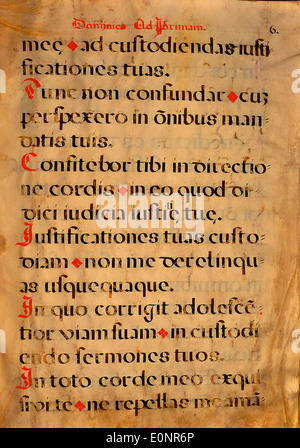 Dominica Ad Primam. 6.
meę ad custodiendas iusti
ficationes tuas.
Tunc non confundar cuȝ
perspexero in õnibus man=
datis tuis.
Confitebor tibi in directio=
ne cordis in eo quod di=
dici iudicia iustitię tuę.
Iustificationes tuas custo=
diam non me derelinqu=
as usquequaque.
In quo corrigit adolescē=
tior viam suam in custodi
endo sermones tuos.
In toto corde meo exqui
sivi te ne repellas me a mā=
alamy
Image ID: E0NR6P
www.alamy.com